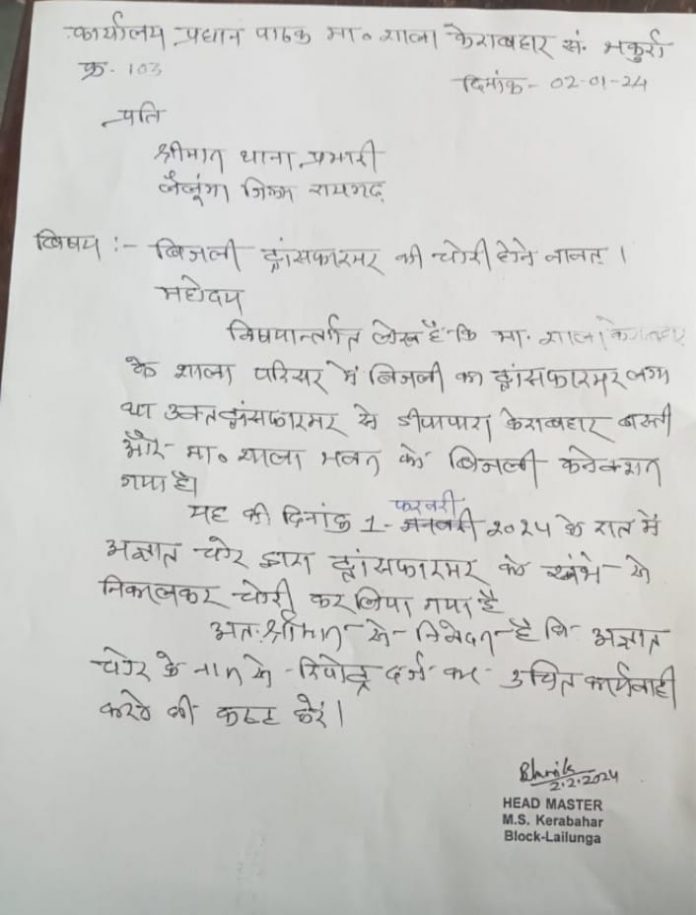 कार्यालय प्रधान पाठक मा० शाला केराबहार सं. भकुर्रा
क्र. 103
दिनांक - 02-01-24
प्रति
श्रीमान थाना प्रभारी
लैलूंगा जिला रायगढ़
विषय :- बिजली ट्रांसफारमर की चोरी होने बाबत ।
महोदय
विषयान्तर्गत लेख है कि मा. शाला केराबहार
के शाला परिसर में बिजली का ट्रांसफारमर लगा
था उक्त ट्रांसफारमर से डीपापारा केराबहार बस्ती
और मा० शाला भवन को बिजली कनेक्शन
गया है।
फरवरी
यह की दिनांक 1- जनवरी 2024 के रात में
अज्ञात चोर द्वारा ट्रांसफारमर को खंभे से
निकालकर चोरी कर लिया गया है
अतः श्रीमान से निवेदन है कि अज्ञात
चोर के नाम से रिपोर्ट दर्ज कर उचित कार्यवाही
करने की कष्ट करें।
2.2.2024
HEAD MASTER
M.S. Kerabahar
Block-Lailunga